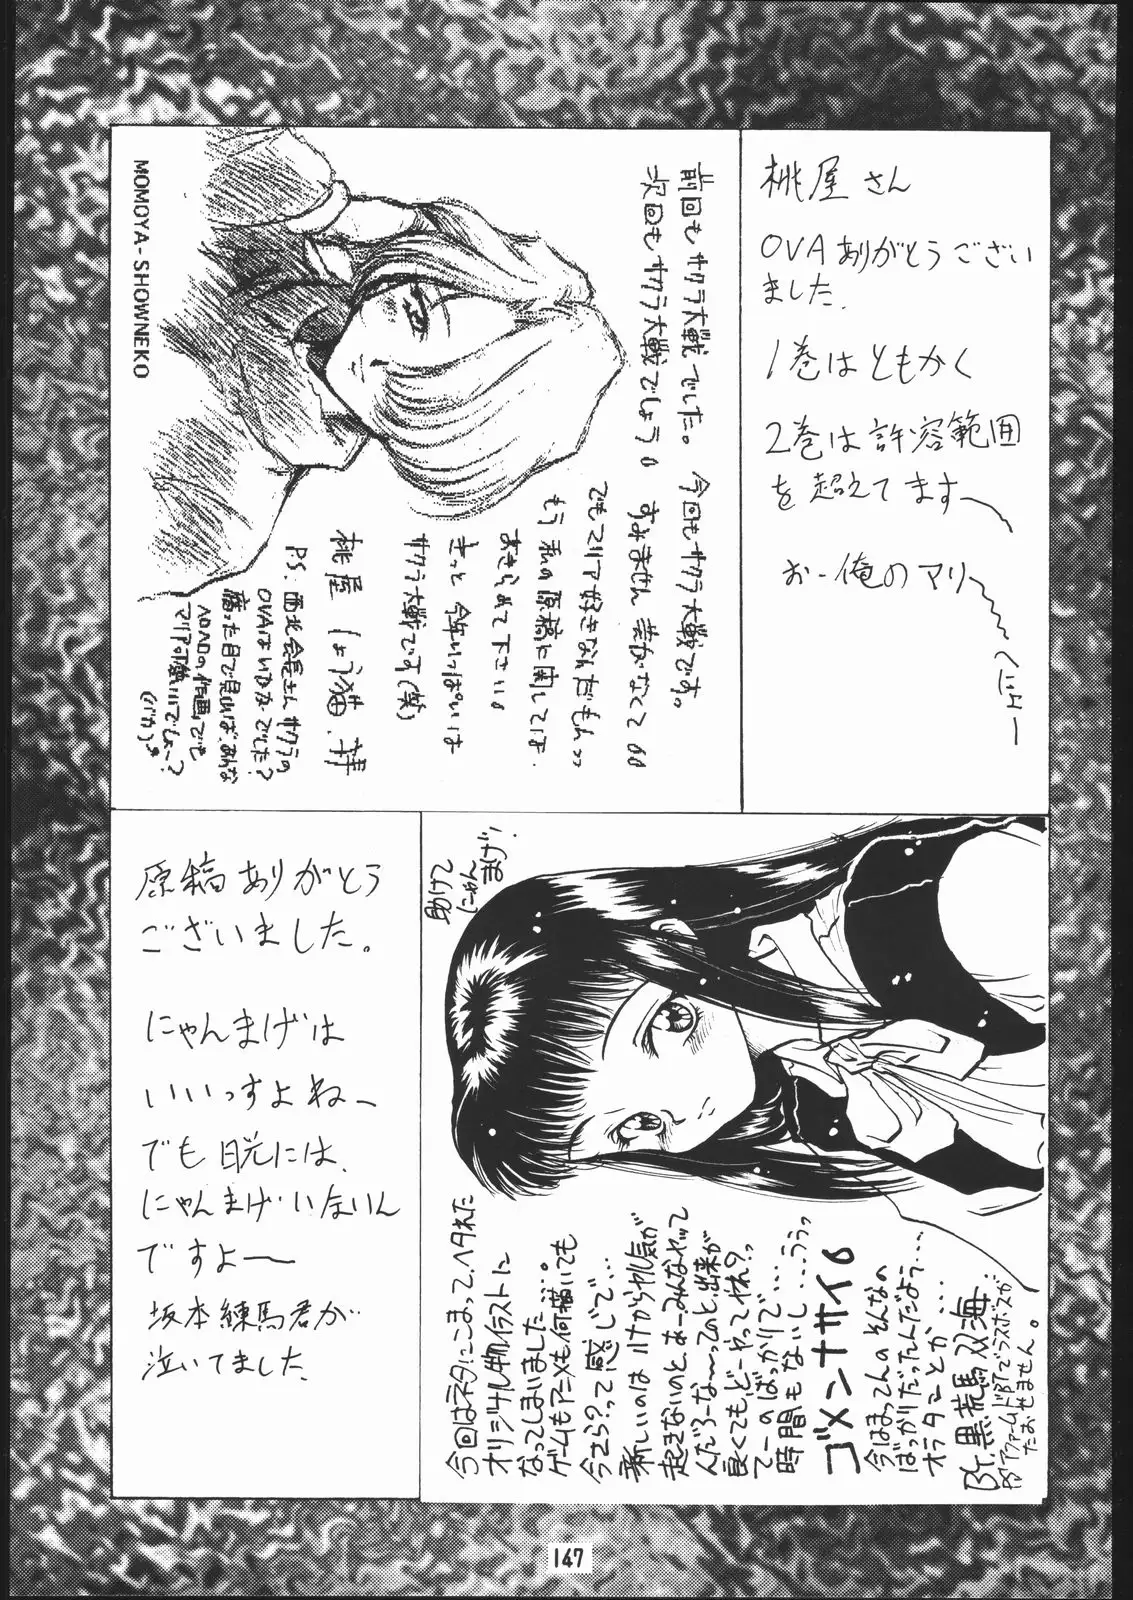 桃屋さん
OVAありがとうござい
ました.
1巻はともかく
2巻は許容範囲
を超えてます〜
おー俺のマリ〜
MOMOYA-SHOWNEKO
前回もサクラ大戦でした。今回もサクラ大戦です。
次回もサクラ大戦でしょう。すみません芸がなくて。。
でもマリア好きなんだもんッッ
もう私の原稿に関しては、
あきらめて下さい。
きっと今年いっぱいは
サクラ大戦です(笑)
桃屋しょう猫.拝
PS.西北会長さんサクラの
OVAはいかがでした?
腐った目で見れば、あんな
ヘロヘロの作画でも
マリア可愛いでしょ〜?
(バカっ)
原稿ありがとう
ございました。
にゃんまげは
いいっすよねー
でも日光には、
にゃんまげいないん
ですよ〜
坂本練馬君が
泣いてました.
助けて
にゃん
まげ!
今回はネタにこまって、ヘタれた
オリジナル物イラストに
なってしまいました…。
ゲームもアニメも何描いても
今さら?って感じで…
新しいのはハナからヤル気が
起きないのと、あーみんなやって
んだろーな〜ってのと、出来が
良くても、どーやってやれ?ッ
てーのばっかりで…
時間もないし…うぅッ
ゴメンナサイ。
今はまってんのそんなの
ばっかりだったんだよう……
オラタンとか…
BY.黒荒馬双海
PS アファームドBTでラスボスが…
たおせません。
147